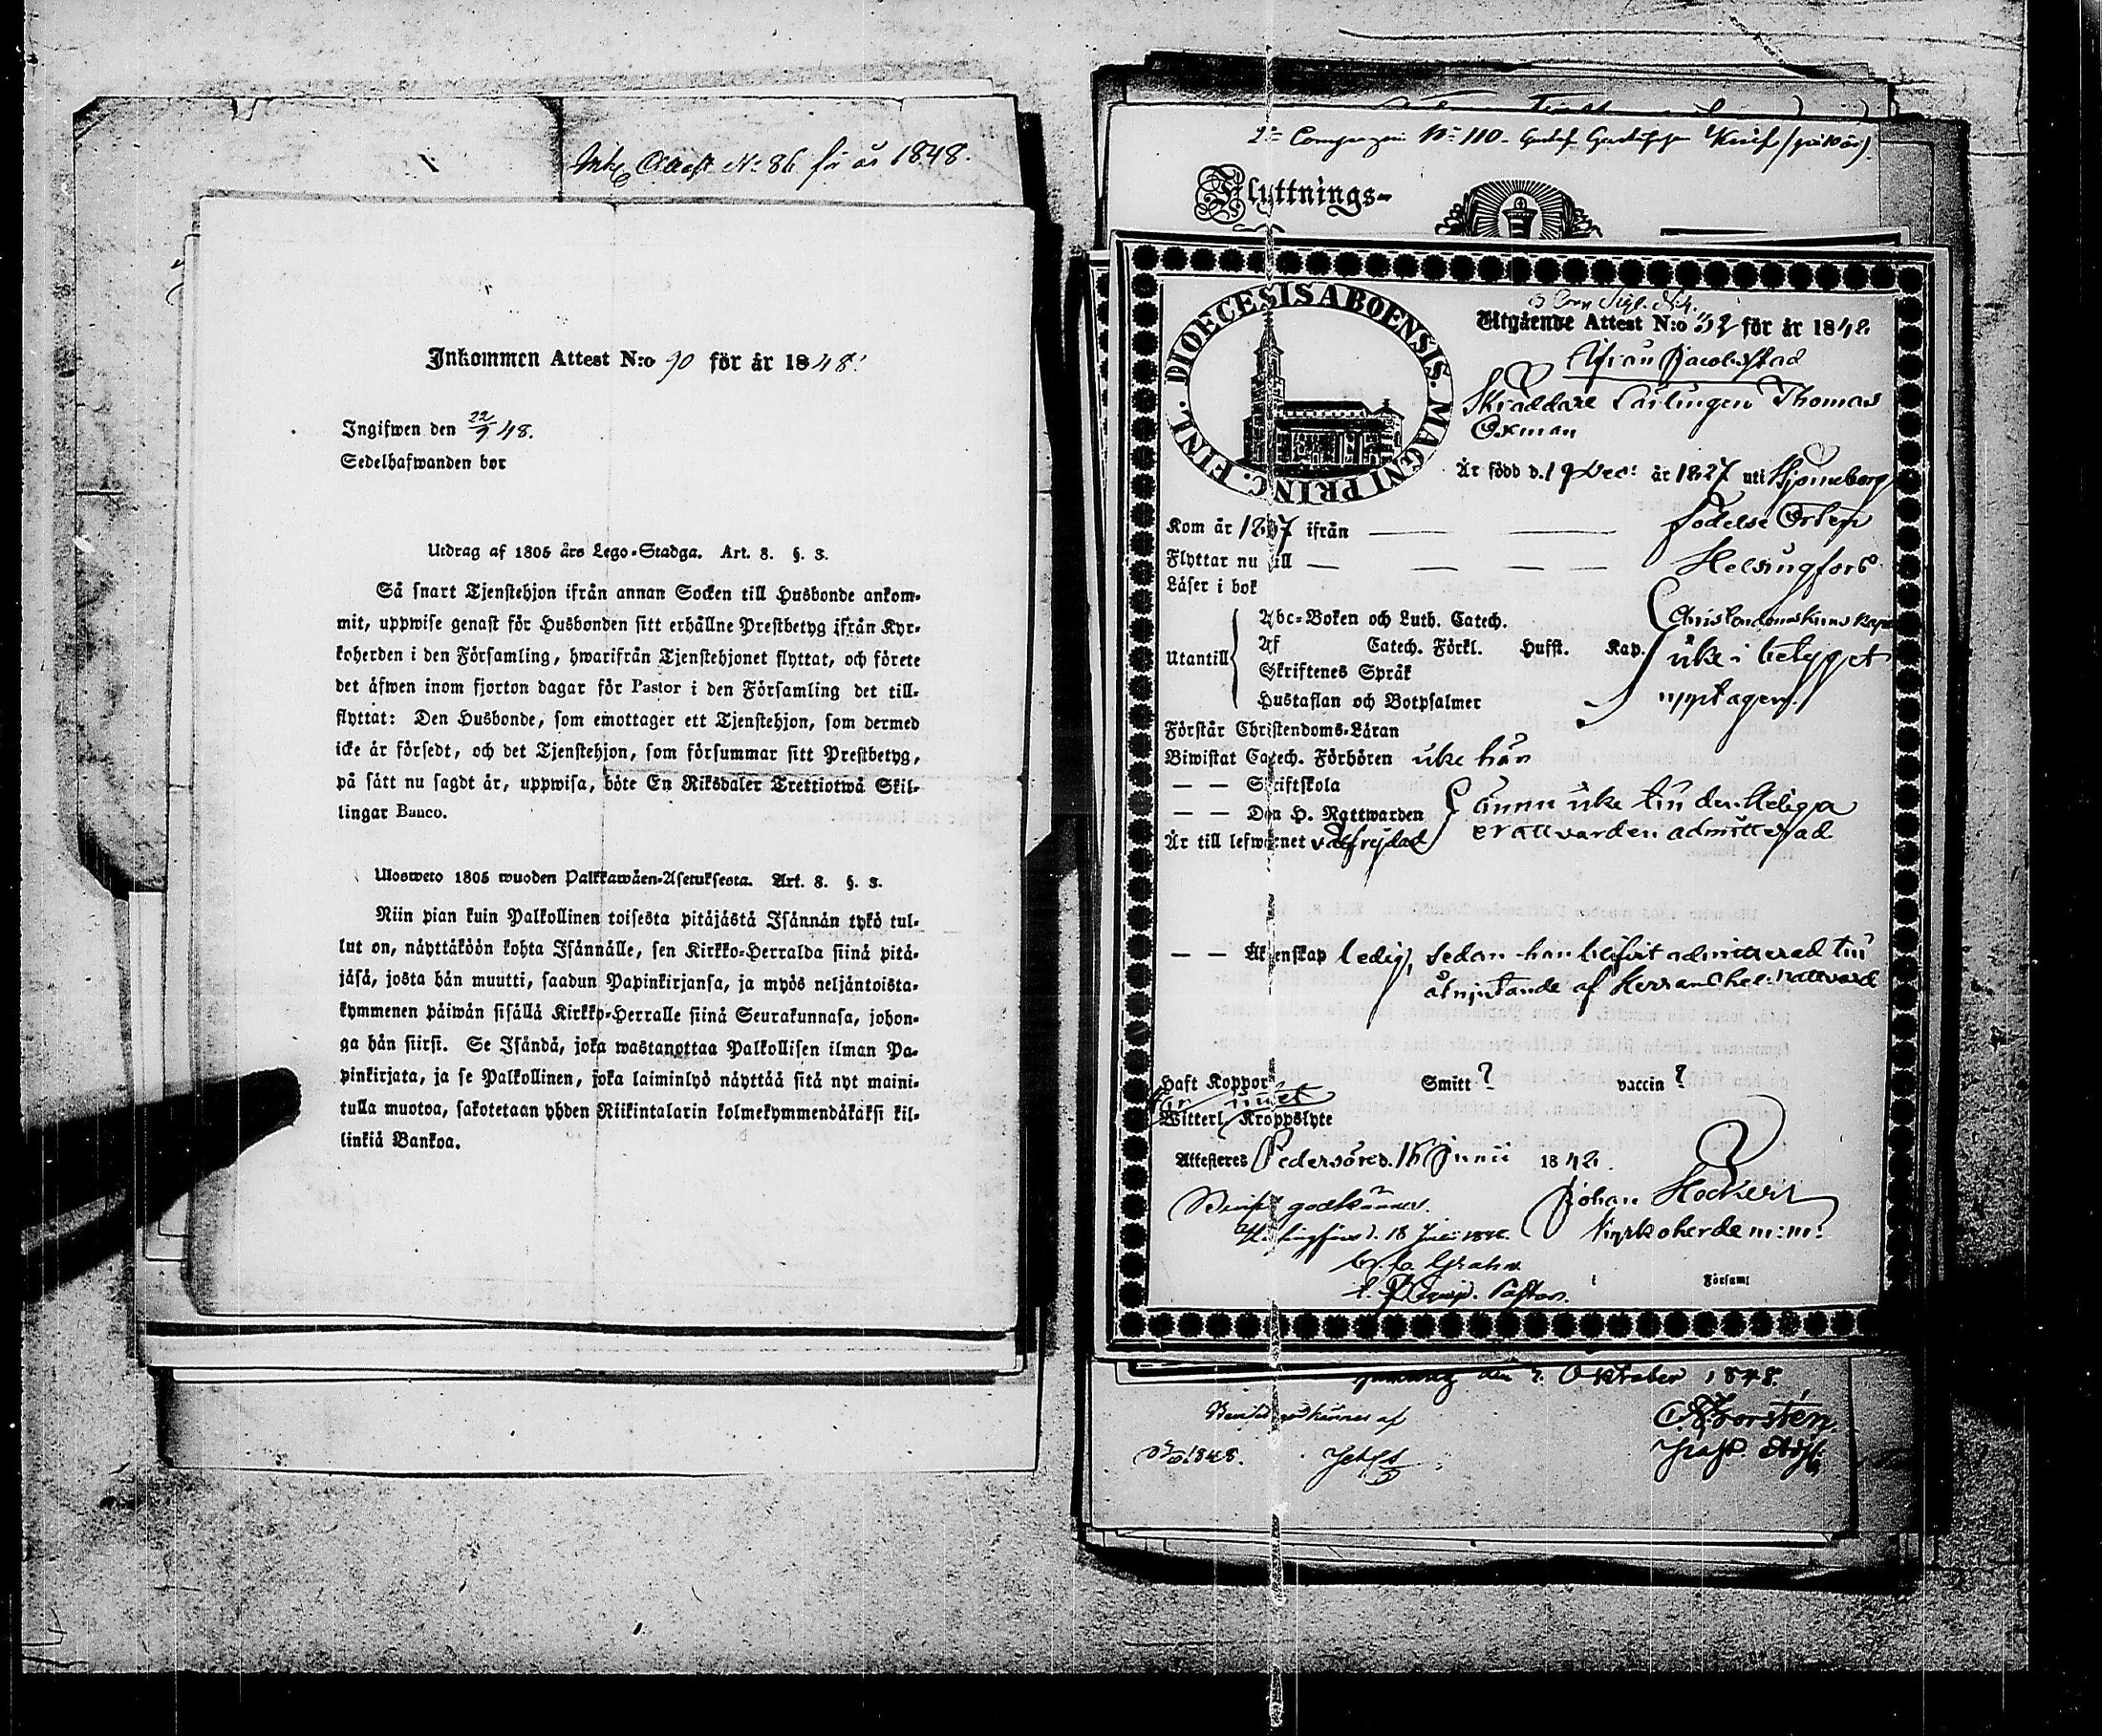 Attest No 86 för år 1848.
Inkommen Attest N:o 90 för år 1848.
Ingifwen den 22/9 48.
Sedelhafwanden bor
Utdrag af 1805 års Lego-Stadga. Art. 8. §. 3.
Så snart Tjenstehjon ifrån annan Socken till Husbonde ankom-
mit, uppwise genast för Husbonden sitt erhållne Prestbetyg ifrån Kyr-
koherden i den Församling, hwarifrån Tjenstehjonet flyttat, och förete
det åfwen inom fjorton dagar för Pastor i den Församling det till-
flyttat: Den Husbonde, som emottager ett Tjenstehjon, som dermed
icke är försedt, och det Tjenstehjon, som försummar sitt Prestbetyg,
på sått nu sagdt år, uppwisa, böte En Riksdaler Trettiotwå Skil-
lingar Banco.
Ulosweto 1805 wuoden Palkkawäen-Asetuksesta. Art. 8. §. 3.
Niin pian kuin Palkollinen toisesta pitäjästä Isännän tykö tul-
lut on, näyttäköön kohta Isännälle, sen Kirkko-Herralda siinä pitä-
jäsä, josta hän muutti, saadun Papinkirjansa, ja myös neljäntoista-
kymmenen päiwän sisällä Kirkko-Herralle siinä Seurakunnasa, johon-
ga hän siirsi. Se Isändä, joka wastanottaa Palkollisen ilman Pa-
pinkirjata, ja se Palkollinen, joka laiminlyö näyttää sitä nyt maini-
tulla muotoa, sakotetaan yhden Riikintalarin kolmekymmendäkaksi kil-
linkiä Bankoa.
2 Compagni No 110. Gustaf
Flyttnings-
DIOECESIS ABOENSIS. MAGNI PRINC. FINL.
Utgående Attest N:o 32 för år 1848
Ifrån Jacobstad
Skräddare Lärlingen Thomas
Oxman
Är född d. 19 Dec: år 1827 uti Björneborg
Kom år 1837 ifrån — — — födelse Orten
Flyttar nu till — — — Helsingfors
Läser i bok
Utantill
Abc-Boken och Luth. Catech.
Af Catech. Förkl. Hufst. Kap.
Skriftenes Språk
Hustaflan och Botpsalmer
Christendomskunskapen
icke i betyget
upptagen.
Förstår Christendoms-Läran
Biwistat Catech. Förhören icke här
— — Skriftskola
— — Den H. Nattwarden
ännu icke till den Heliga
Nattvarden admitterad
Är till lefwernet välfrejdad
— — Äktenskap ledig, sedan han blifvit admitterad till
åtnjutande af Herrans hel. nattvard
Haft Koppor Smitt ? vaccin ?
Witterl. Kroppslyte
Attesteres Pedersöre d. 16 Junii 1842.
Johan Hockert
Kyrkoherde m:m:
godkännes.
Helsingfors d. 18
Grahn
Pastor.
i Församl
den 2 Oktober 1848.
godkännes af
1848.